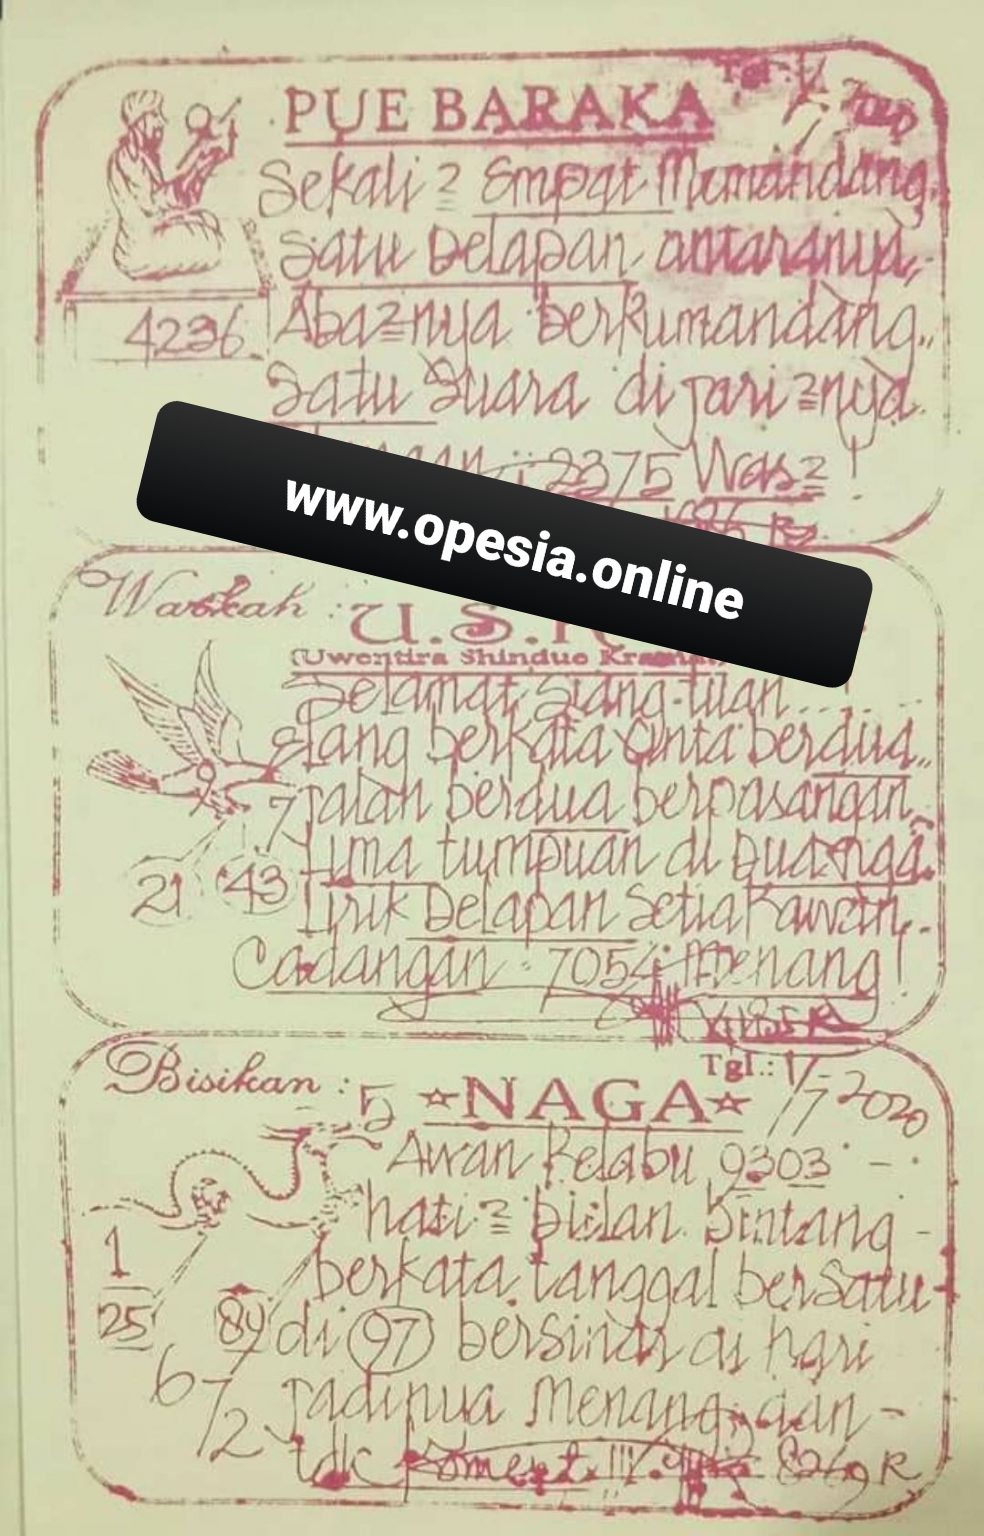 PUE BARAKA Tgl.: 1/7 2020
Sekali 2 Empat Memandang..
Satu Delapan antaranya,-
4236. Aba2nya berkumandang..
Satu Suara di jari 2nya.
2375 Was2 !
www.opesia.online
Warkah :
(Uwentira Shindue Kramat)
Selamat Siang tuan....
Elang berkata Cinta berdua..
9 7 jalan berdua berpasangan
Lima tumpuan di Duanga.
21 43 Lirik Delapan Setia Kawan.
Cadangan : 7054 Menang !
Bisikan : 5 ☆NAGA☆ Tgl.: 1/7 2020
Awan Kelabu 9303 - .
hati 2 bulan Bintang -
1 berkata tanggal berSatu -
25 84 di 97 bersinar di hari
6 7/2 jadinya Menang dan -
tdk Koment !!!